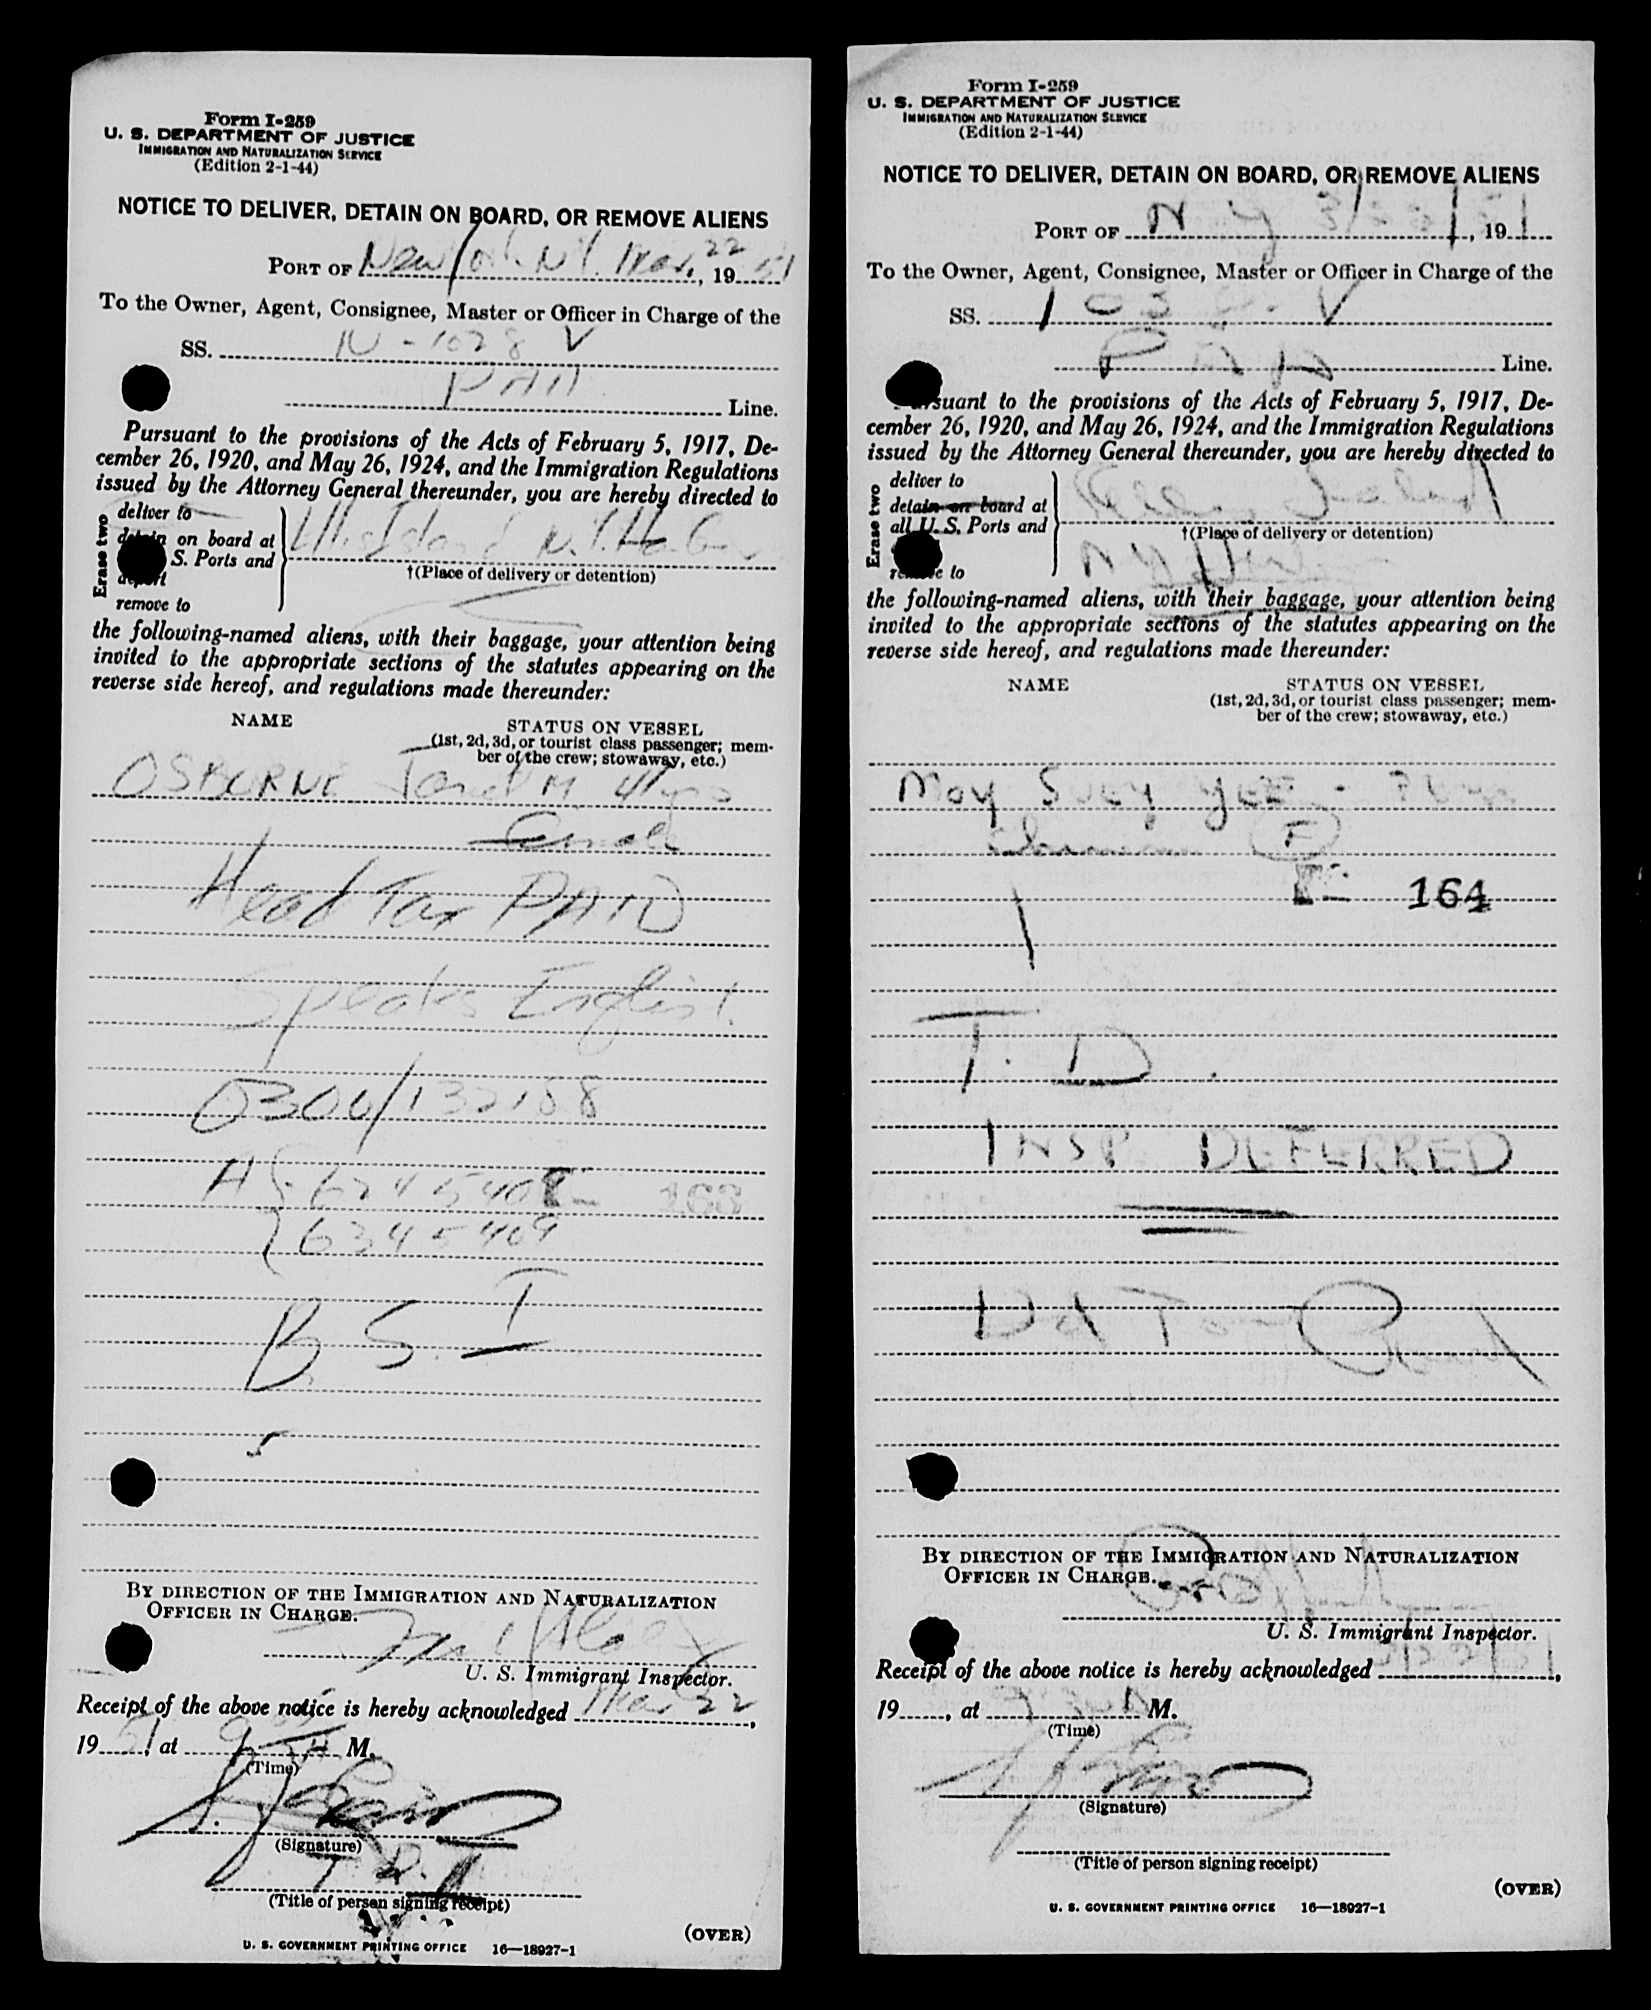 Form I-259
U. S. DEPARTMENT OF JUSTICE
IMMIGRATION AND NATURALIZATION SERVICE
(Edition 2-1-44)
NOTICE TO DELIVER, DETAIN ON BOARD, OR REMOVE ALIENS
PORT OF New York N.Y. Mar. 22, 19 51
To the Owner, Agent, Consignee, Master or Officer in Charge of the
SS. N-1028 V
PAA Line.
Pursuant to the provisions of the Acts of February 5, 1917, De-
cember 26, 1920, and May 26, 1924, and the Immigration Regulations
issued by the Attorney General thereunder, you are hereby directed to
Erase two
deliver to
on board at
S. Ports and
remove to
Ellis Island N.Y. Harbor
†(Place of delivery or detention)
the following-named aliens, with their baggage, your attention being
invited to the appropriate sections of the statutes appearing on the
reverse side hereof, and regulations made thereunder:
NAME STATUS ON VESSEL
(1st, 2d, 3d, or tourist class passenger; mem-
ber of the crew; stowaway, etc.)
OSBORNE Janet M
Head Tax PAID
Speaks English
0300/132158
A
6345409
163
B. S. I
BY DIRECTION OF THE IMMIGRATION AND NATURALIZATION
OFFICER IN CHARGE.
U. S. Immigrant Inspector.
Receipt of the above notice is hereby acknowledged Mar 22,
19 51 at M.
(Time)
(Signature)
(Title of person signing receipt)
(OVER)
U. S. GOVERNMENT PRINTING OFFICE 16—18927-1
Form I-259
U. S. DEPARTMENT OF JUSTICE
IMMIGRATION AND NATURALIZATION SERVICE
(Edition 2-1-44)
NOTICE TO DELIVER, DETAIN ON BOARD, OR REMOVE ALIENS
PORT OF N Y, 19
To the Owner, Agent, Consignee, Master or Officer in Charge of the
SS. V
PAA Line.
Pursuant to the provisions of the Acts of February 5, 1917, De-
cember 26, 1920, and May 26, 1924, and the Immigration Regulations
issued by the Attorney General thereunder, you are hereby directed to
Erase two
deliver to
detain on board at
all U. S. Ports and
remove to
Ellis Island
†(Place of delivery or detention)
NY
the following-named aliens, with their baggage, your attention being
invited to the appropriate sections of the statutes appearing on the
reverse side hereof, and regulations made thereunder:
NAME STATUS ON VESSEL
(1st, 2d, 3d, or tourist class passenger; mem-
ber of the crew; stowaway, etc.)
Moy Suey Yee
F
164
T. D.
INSP. DEFERRED
BY DIRECTION OF THE IMMIGRATION AND NATURALIZATION
OFFICER IN CHARGE.
U. S. Immigrant Inspector.
Receipt of the above notice is hereby acknowledged,
19, at M.
(Time)
(Signature)
(Title of person signing receipt)
(OVER)
U. S. GOVERNMENT PRINTING OFFICE 16—18927-1